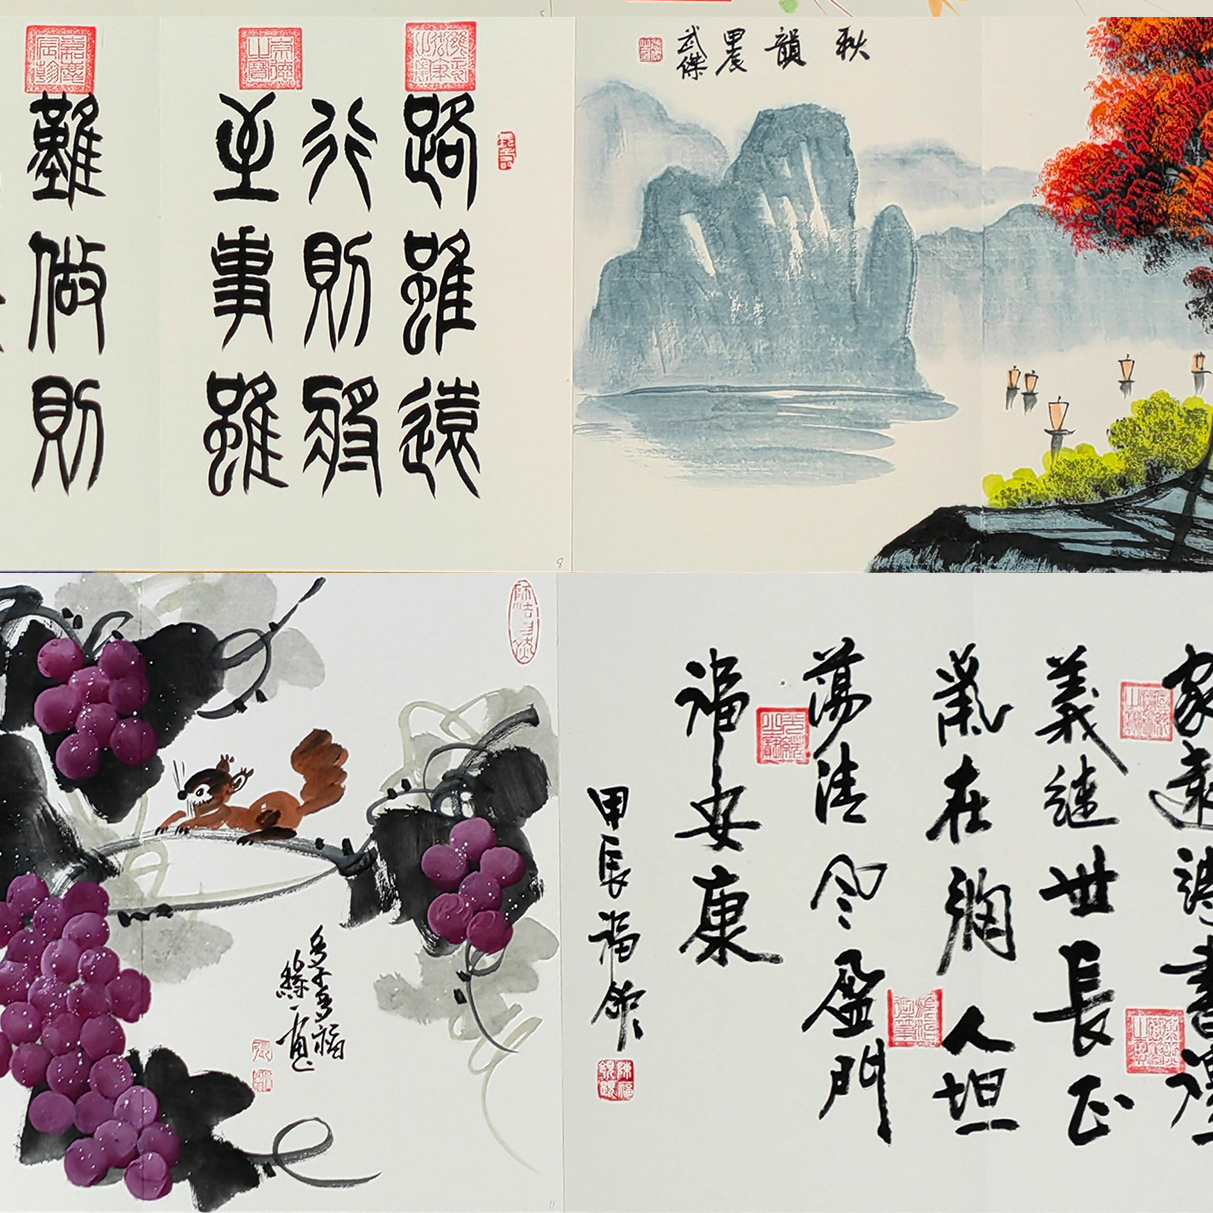 路雖遠
行則將
至事雖
難做則
秋韻
甲辰
武傑
多子多福
緣一画
家詩書禮
義繼世長正
氣在胸人坦
蕩清令盈門
福安康
甲辰福